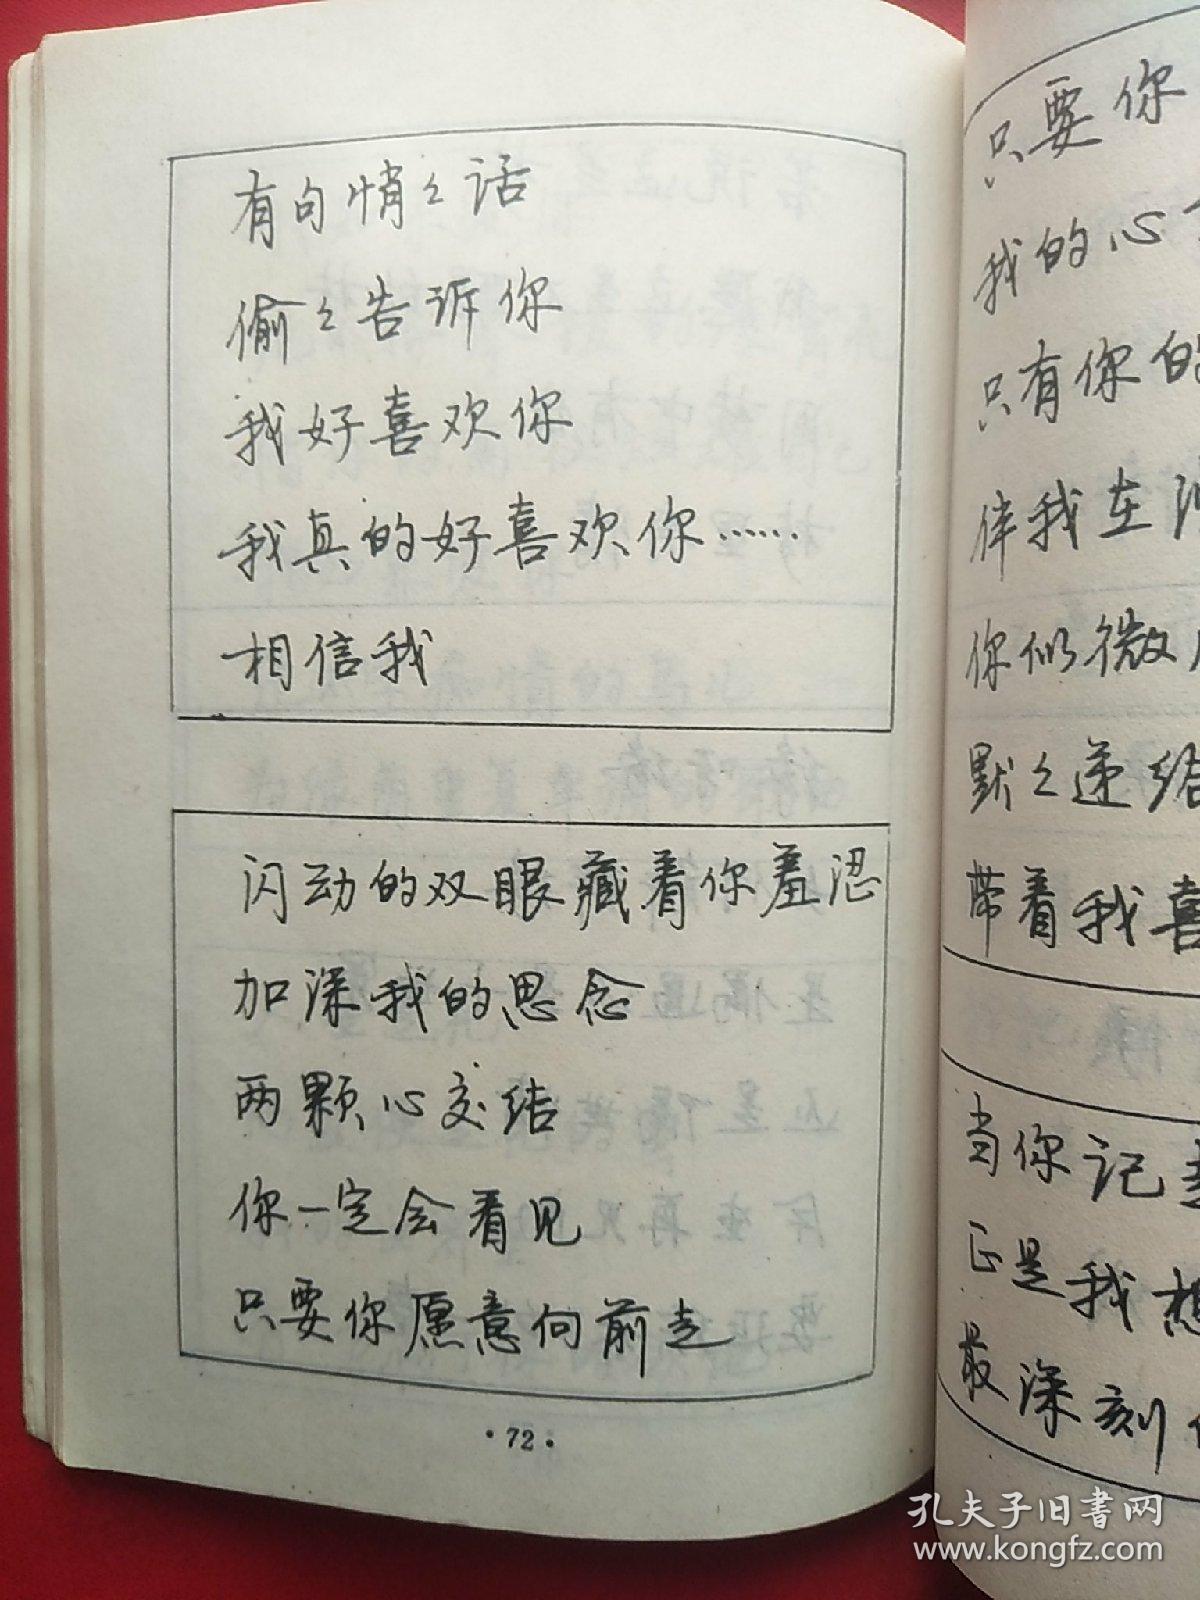 有句悄々话
偷々告诉你
我好喜欢你
我真的好喜欢你……
相信我
闪动的双眼藏着你羞涩
加深我的思念
两颗心交结
你一定会看见
只要你愿意向前走
·72·
只要你
我的心
只有你的
伴我在
你似微
默々递给
带着我喜
当你记
正是我想
最深刻
孔夫子旧书网
www.kongfz.com